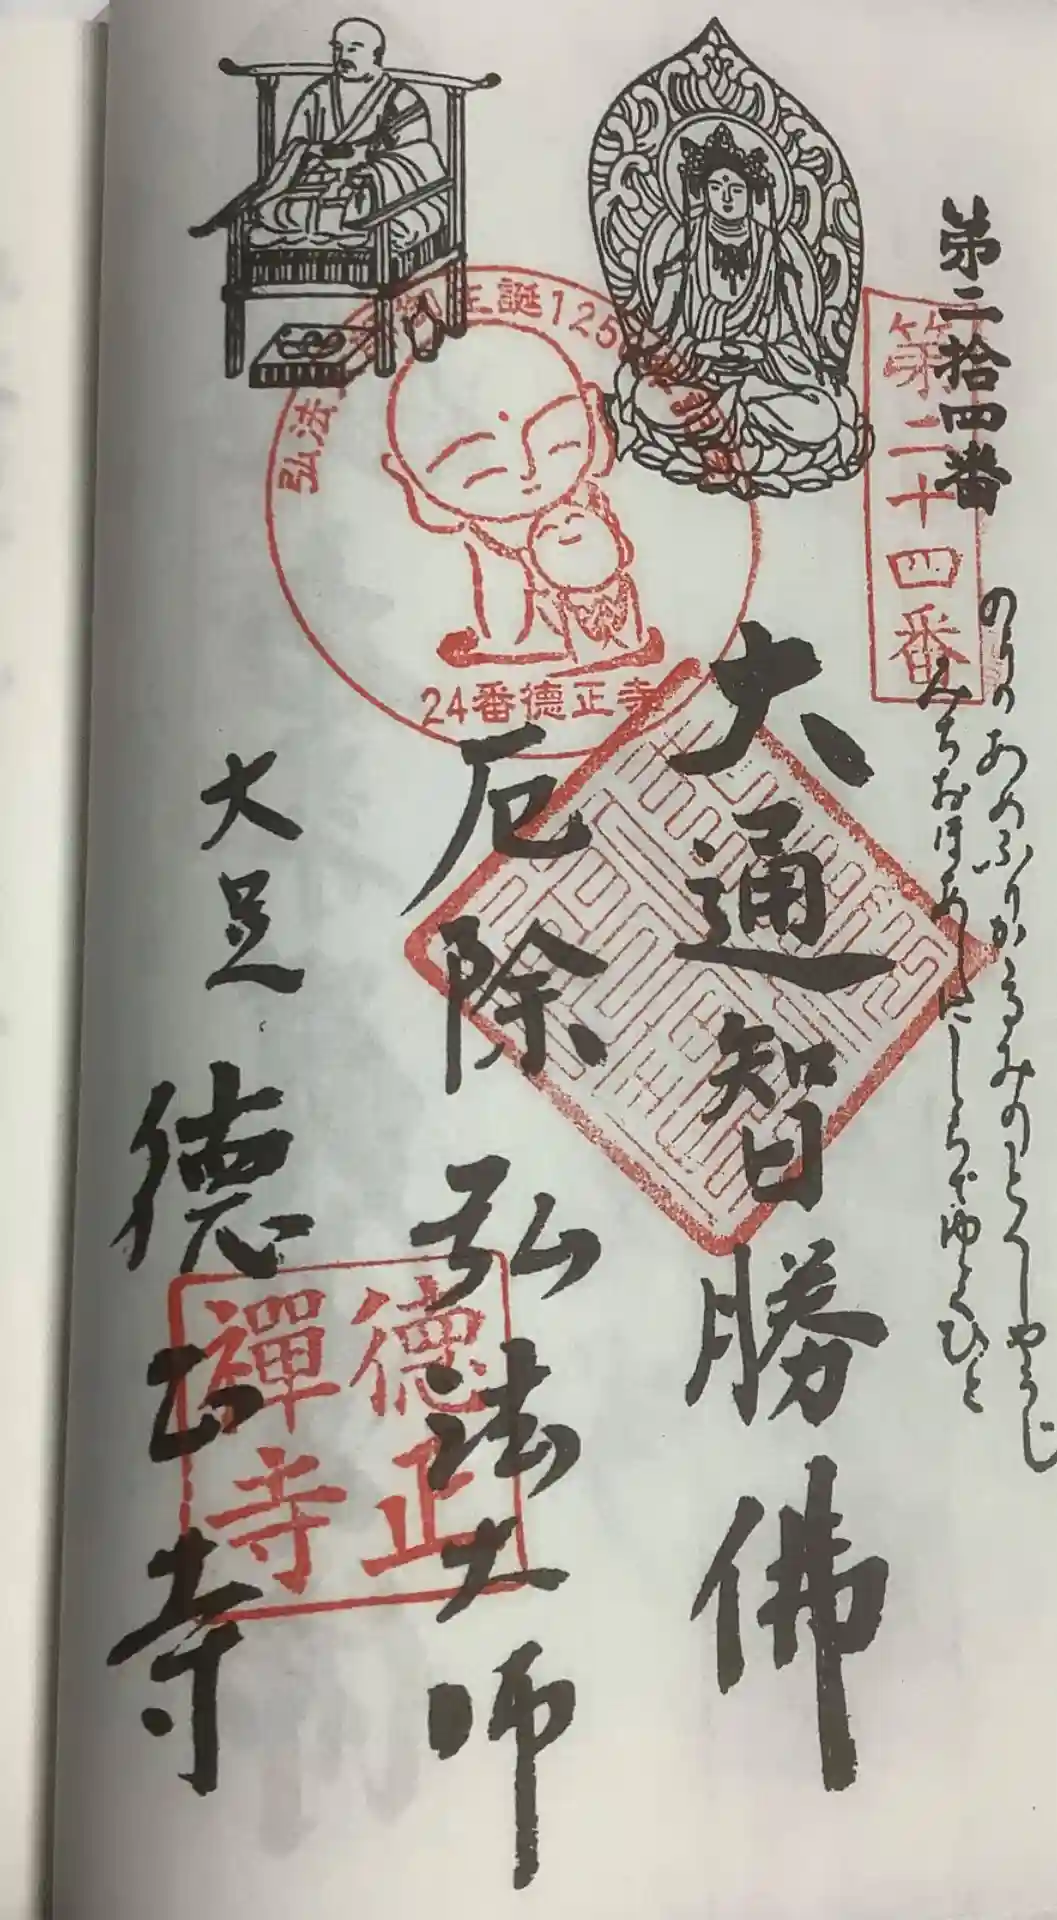 第二拾四番
のりのあめふりかゝるみのとくしやうじ
みちおほあしにしらでゆくひと
第二十四番
大通智勝佛
厄除弘法大師
大足
德正寺
弘法 生誕125
24番徳正寺
德正
禪寺